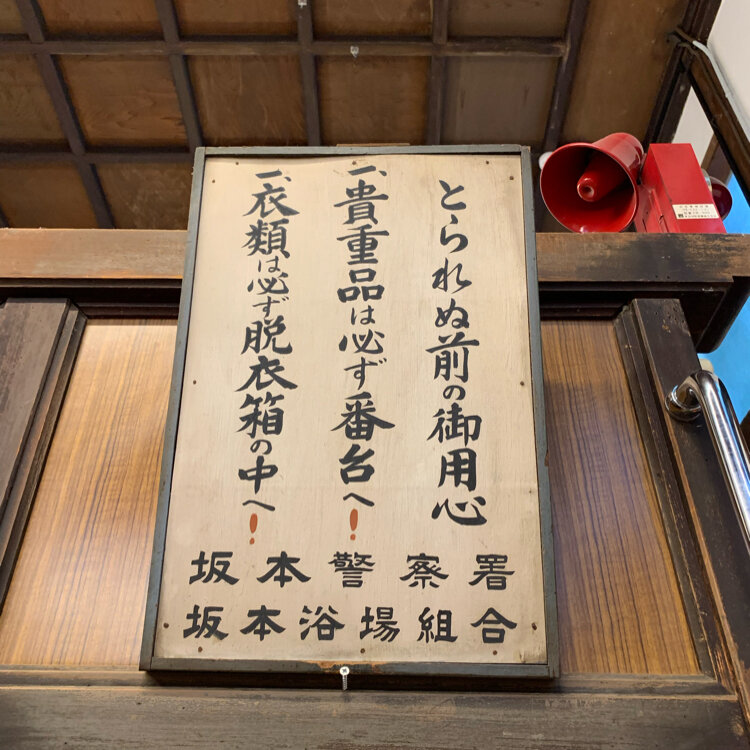 とられぬ前の御用心
一、貴重品は必ず番台へ!
一、衣類は必ず脱衣箱の中へ!
坂本警察署
坂本浴場組合